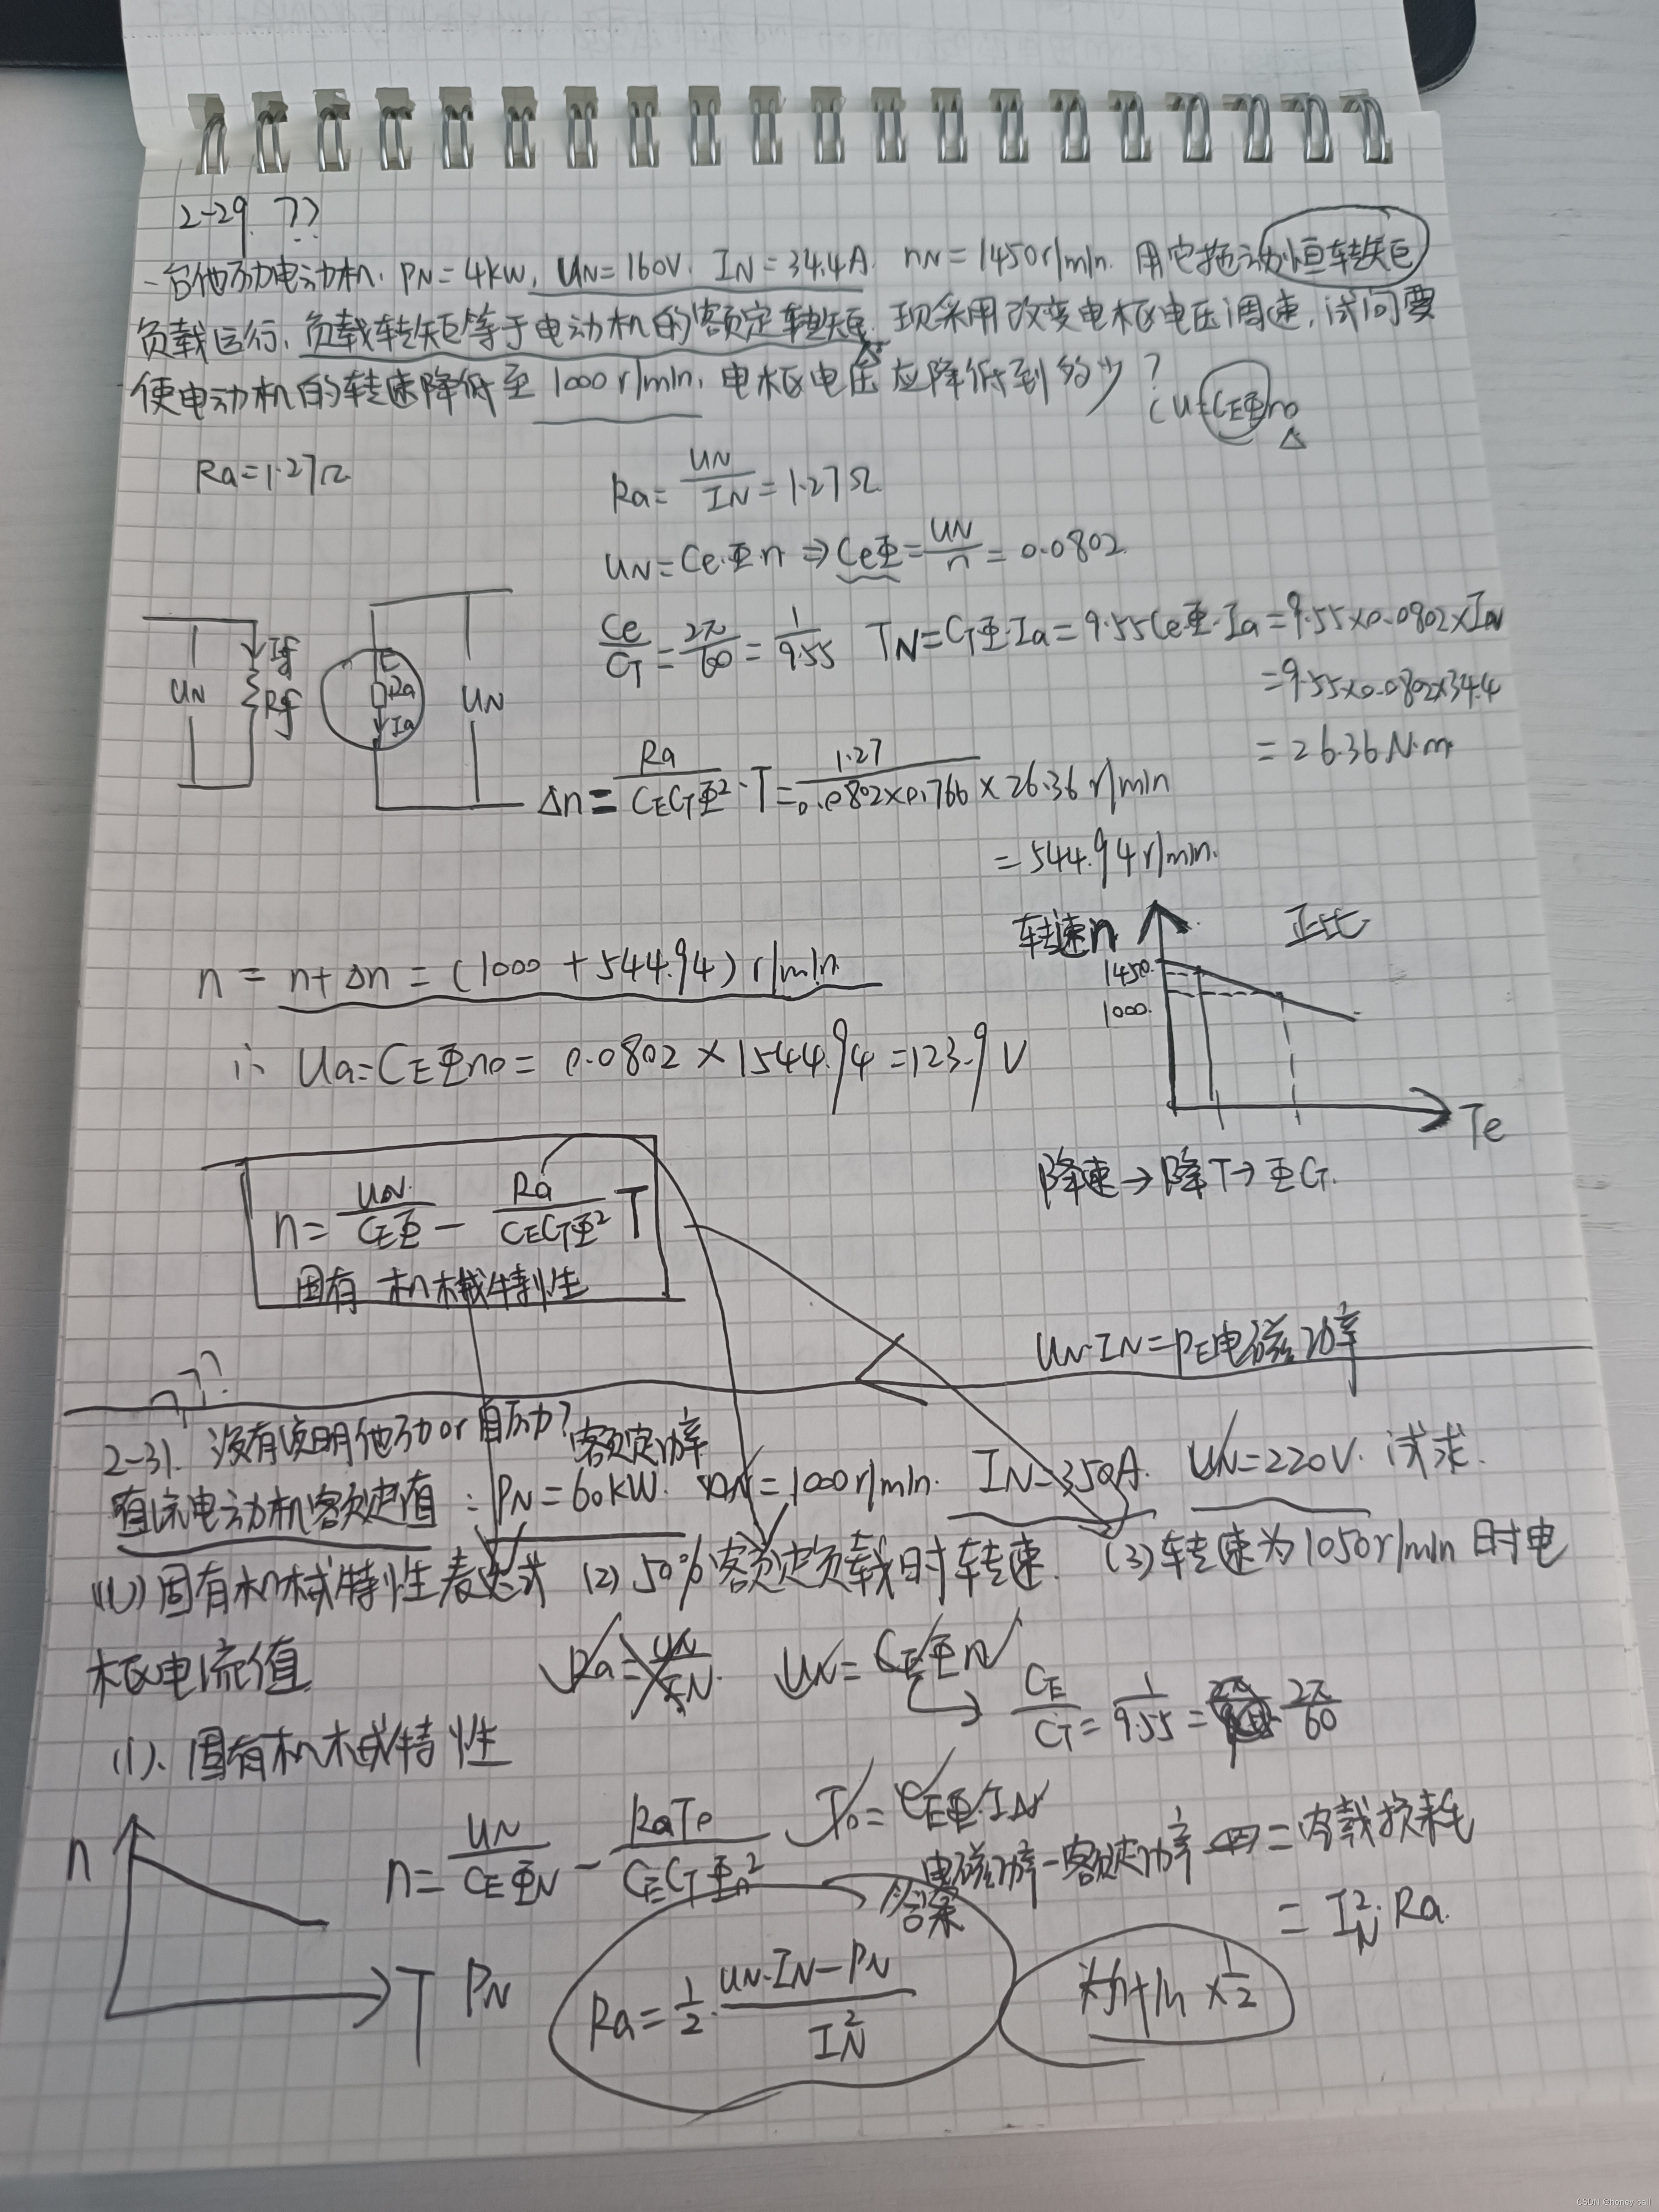 2-29. ??
一台他励电动机. PN=4kW, UN=160V. IN=34.4A. nN=1450r/min. 用它拖动恒转矩
负载运行, 负载转矩等于电动机的额定转矩. 现采用改变电枢电压调速, 试问要
使电动机的转速降低至1000r/min, 电枢电压应降低到多少?
(U=CEΦn0
Ra=1.27Ω
Ra=UN/IN=1.27Ω
UN=Ce·Φ·n ⇒ CeΦ=UN/n=0.0802
Ce/CT=2π/60=1/9.55 TN=CTΦ·Ia=9.55CeΦ·Ia=9.55×0.0802×IN
=9.55×0.0802×34.4
=26.36N·m
UN If Rf E Ra Ia UN
Δn=Ra/CECTΦ²·T=1.27/0.0802×0.766×26.36r/min
=544.94r/min.
n=n+Δn=(1000+544.94)r/min
∴ Ua=CEΦn0=0.0802×1544.94=123.9V
转速n 正比
1450
1000
Te
降速→降T→ΦCT
n=UN/CEΦ-Ra/CECTΦ²T
固有机械特性
UN·IN=PE电磁功率
???
2-31. 没有说明他励or自励?
额定功率
直流电动机额定值: PN=60kW. nN=1000r/min. IN=350A. UN=220V. 试求.
(1)固有机械特性表达式 (2)50%额定负载时转速. (3)转速为1050r/min时电
枢电流值
Ra=UN/IN UN=CEΦn
CE/CT=1/9.55=2π/60
(1). 固有机械特性
n T
n=UN/CEΦN-RaTe/CECTΦN² T0=CEΦ·IN
电磁功率-额定功率=内载损耗
=IN²·Ra
答案
PN
Ra=1/2·UN·IN-PN/IN²
×1/2
CSDN @honey ball